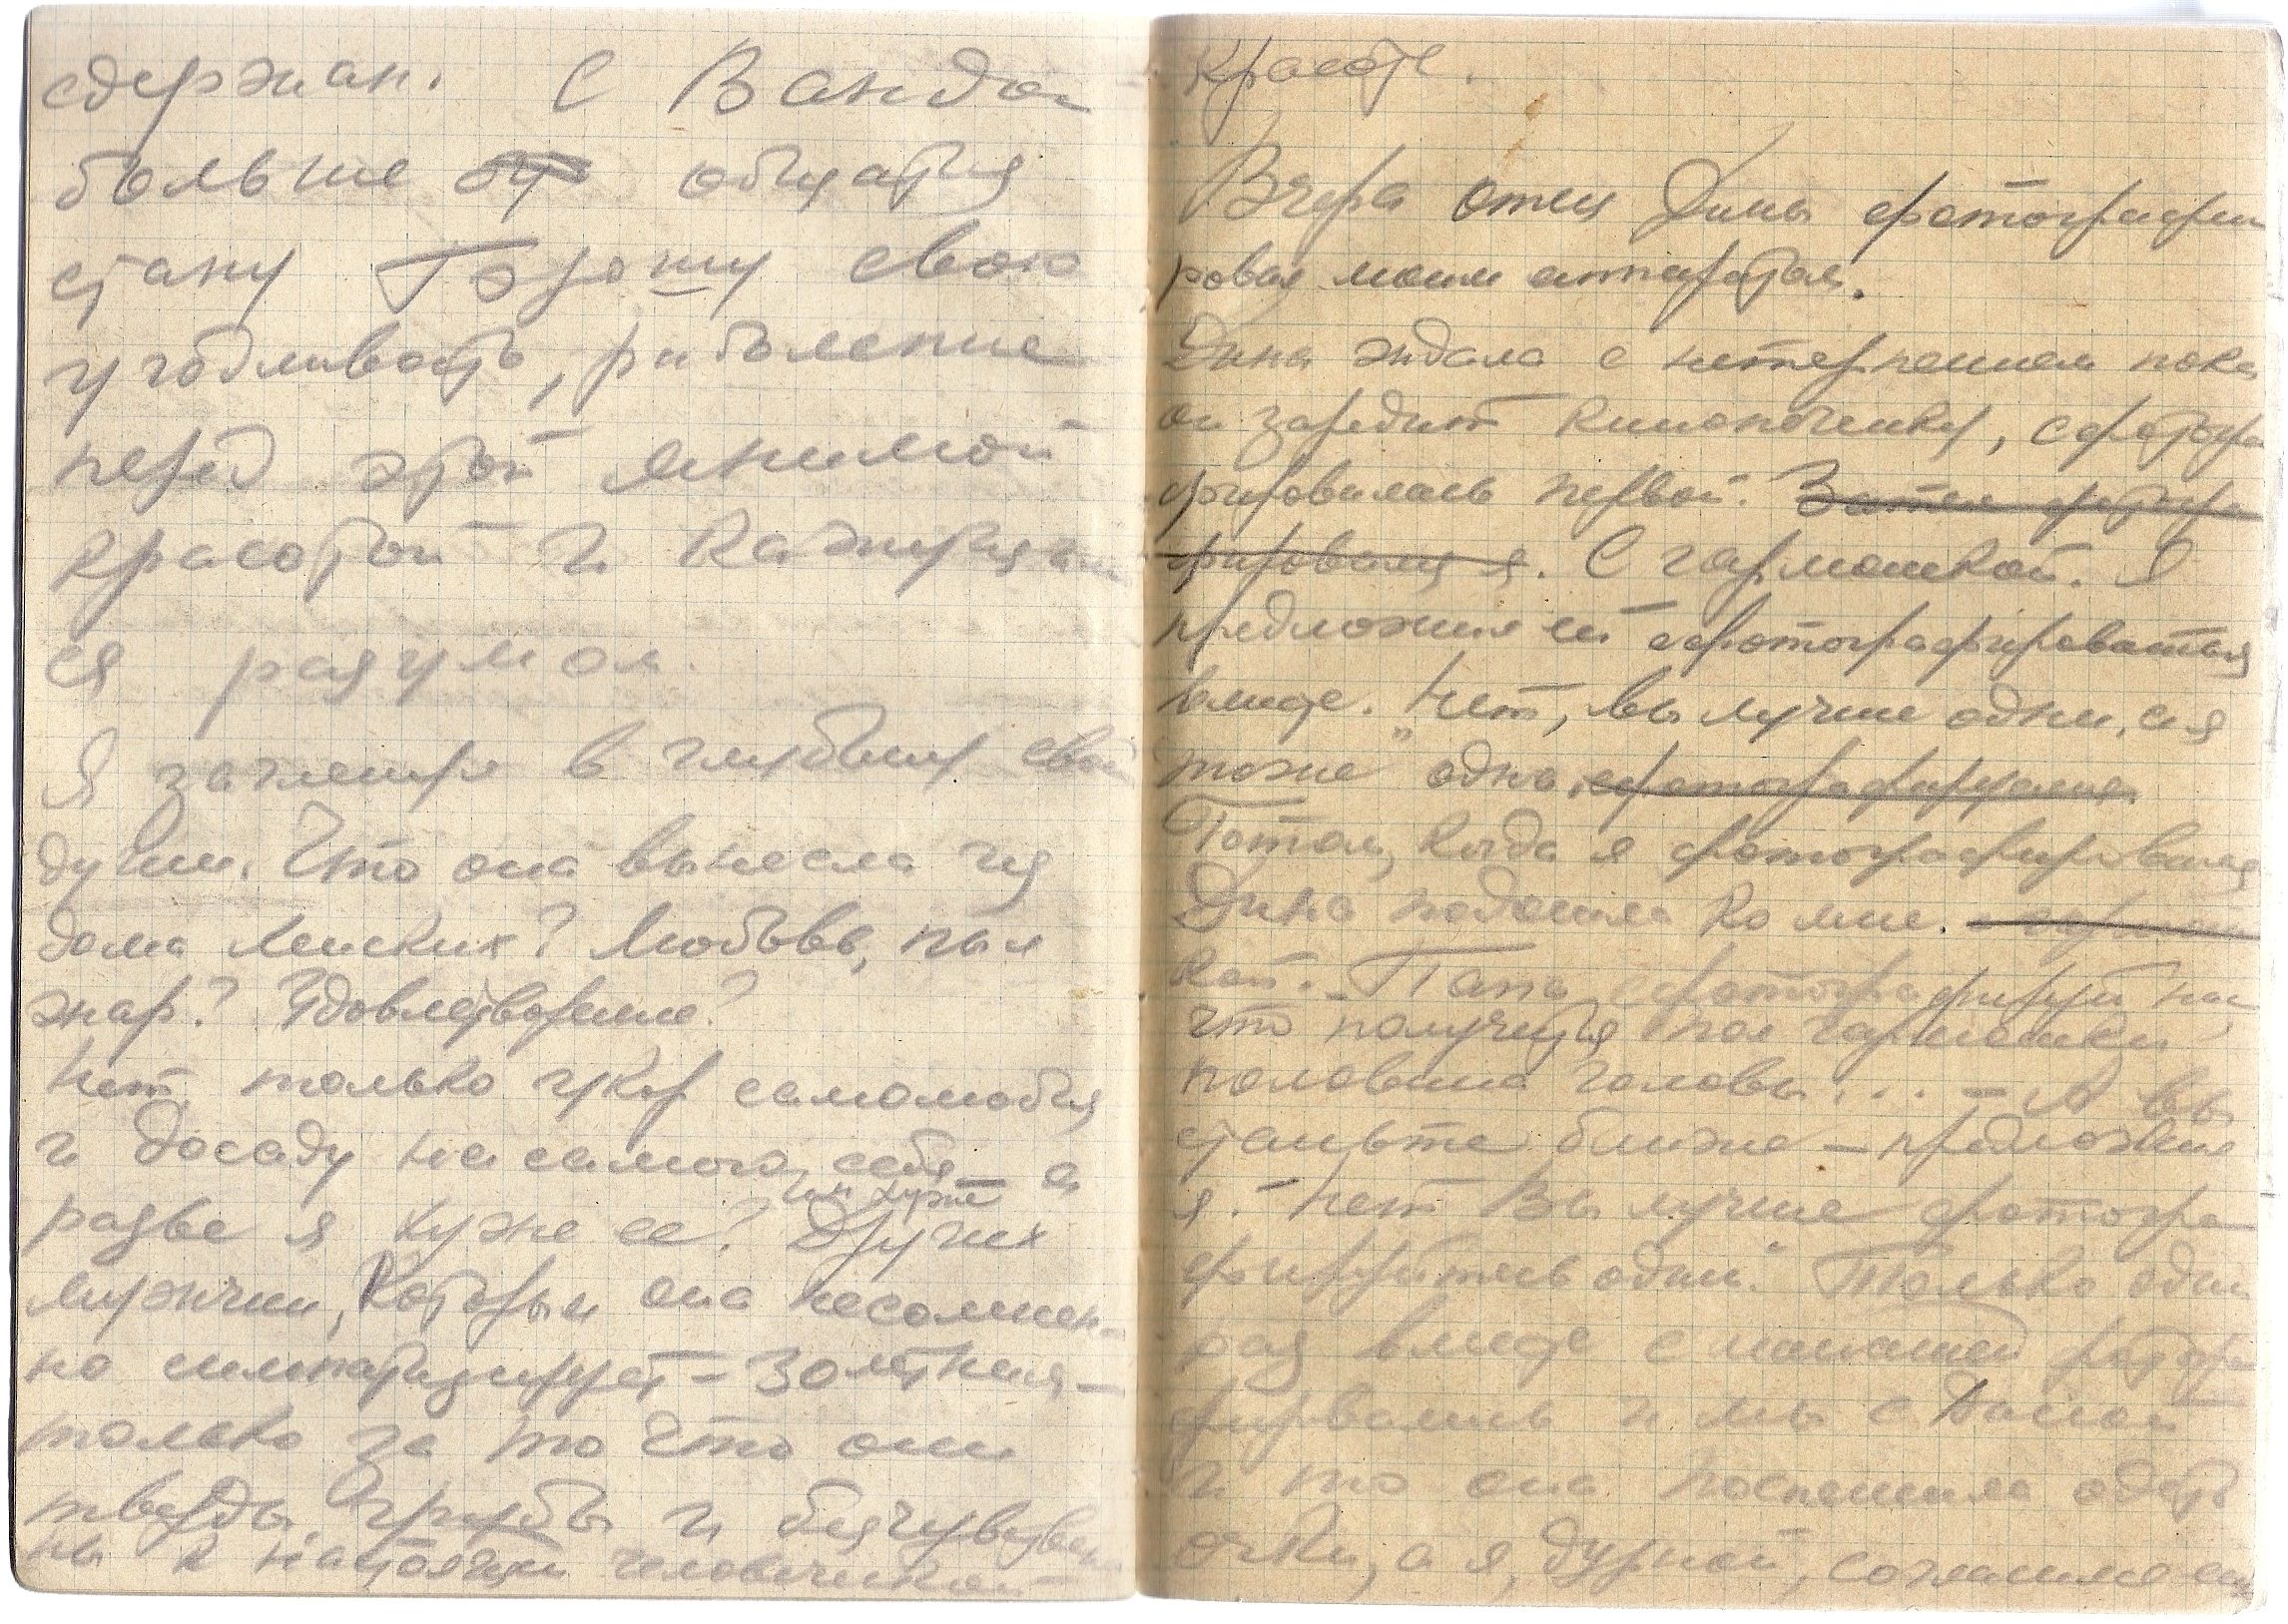 сдержан. С Вандой
больше общаться
стану Брошу свою
угодливость, раболепие
перед этой мнимой
красотой и кажущим
ся разумом.
Я заглянул в глубину свой
души. Что она вынесла из
дома Ленских? Любовь, пыл
жар? Удовлетворение?
Нет, только укор самолюбия
и досаду на самого себя – а
разве я хуже ее? Чем хуже Других
мужчин, которым она несомнен-
но симпатизирует – 30 летних –
только за то что они
тверды, грубы и бесчувствен
ны к настоящей человеческой
красоте.
Вчера отец Дины фотографи
ровал моим аппаратом.
Дина ждала с нетерпением пока
он зарядит кинопленку, сфотогра
фировалась первой. Затем фотогра
фировался я. С гармошкой. Я
предложил ей сфотографироваться
вместе. "Нет, вы лучше один, а я
тоже" одна, сфотографируюсь.
Потом, когда я фотографировался
Дина подошла ко мне. – с гармош
кой. – Папа, сфотографируй нас,
что получится пол гармошки
половина головы... – А вы
станьте ближе – предложил
я. – "Нет Вы лучше фотогра
фируйтесь один." Только один
раз вместе с мамашей фотогра
фировались и мы с Диной
и то она поспешила одеть
очки, а я, дурной, согласился